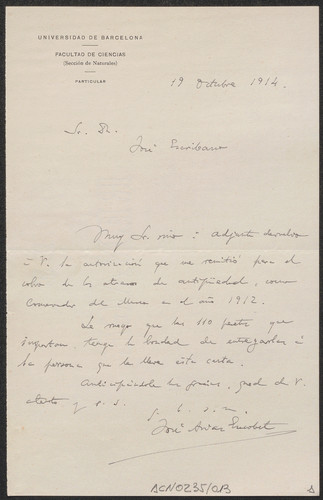 UNIVERSIDAD DE BARCELONA
FACULTAD DE CIENCIAS
(Sección de Naturales)
PARTICULAR
19 Octubre 1914.
Sr. Dr.
José Escribano
Muy Sr. mio: adjunta devuelvo
á V. la autorización que me remitió para el
cobro de los atrasos de antigüedad, como
Conservador del Museo en el año 1912.
Le ruego que las 110 pesetas que
importan, tenga la bondad de entregarlas á
la persona que le lleve esta carta.
Anticipándole las gracias, queda de V.
atento y s. s.
q. b. s. m.
José Arias Encobet
ACN0235/013